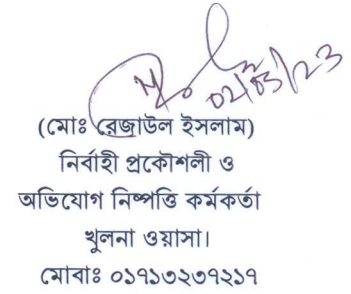 02/03/23
(মোঃ রেজাউল ইসলাম)
নির্বাহী প্রকৌশলী ও
অভিযোগ নিষ্পত্তি কর্মকর্তা
খুলনা ওয়াসা।
মোবাঃ ০১৭১৩২৩৭২১৭